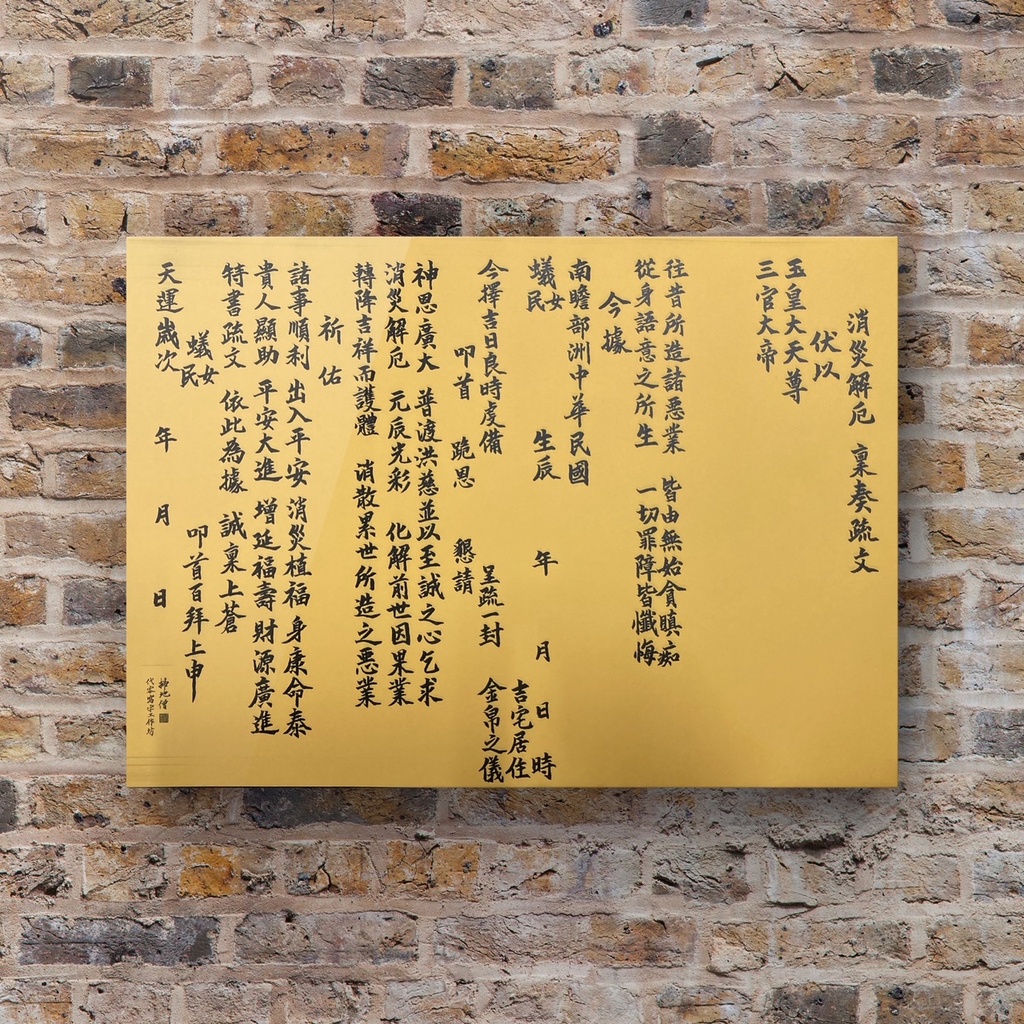 消災解厄 稟奏疏文
伏以
玉皇大天尊
三官大帝
往昔所造諸惡業 皆由無始貪瞋痴
從身語意之所生 一切罪障皆懺悔
今據
南瞻部洲中華民國
蟻民女 生辰 年 月 日 時
吉宅居住
今擇吉日良時虔備 呈疏一封 金帛之儀
叩首 跪恩 懇請
神恩廣大 普渡洪慈並以至誠之心乞求
消災解厄 元辰光彩 化解前世因果業
轉降吉祥而護體 消散累世所造之惡業
祈佑
諸事順利 出入平安 消災植福 身康命泰
貴人顯助 平安大進 增延福壽 財源廣進
特書疏文 依此為據 誠稟上蒼
蟻民女 叩首百拜上申
天運歲次 年 月 日
掃地僧
代客寫字工作坊